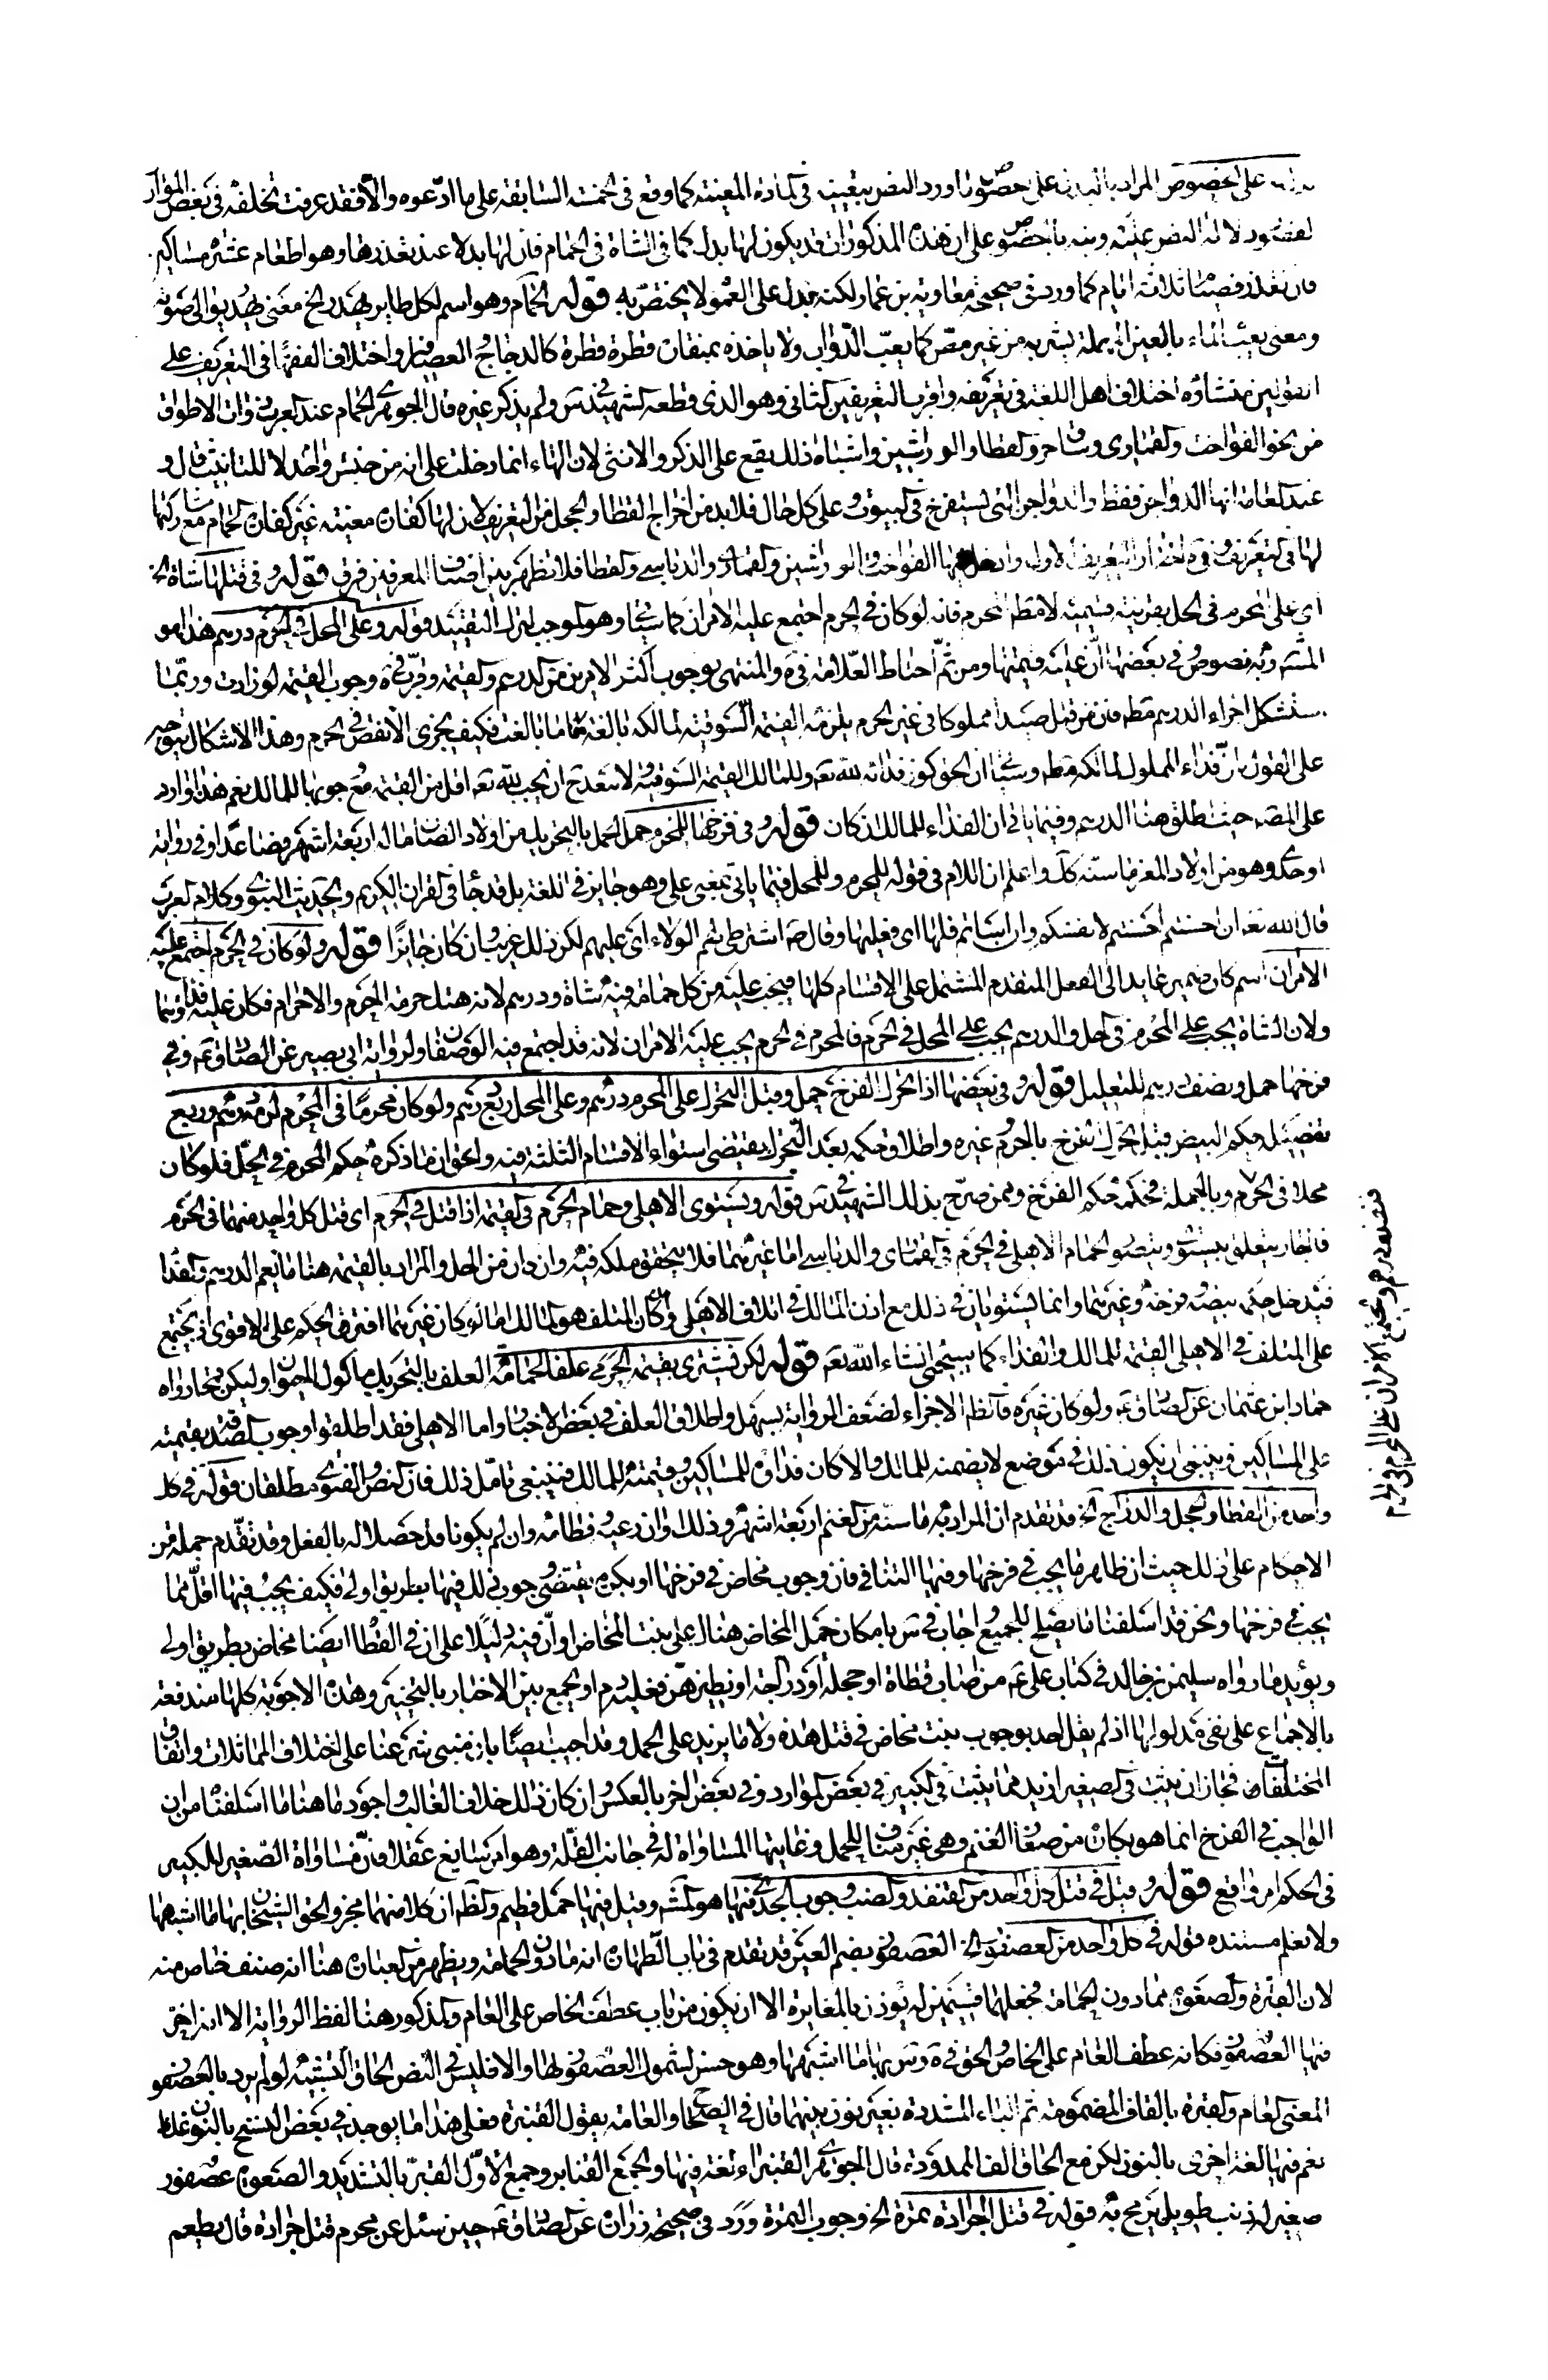 على الخصوص المراد بالبدل على الخصوص ما ورد النص بتعيينه في المادة المعينة كما وقع في الخمسة السابقة على ما ادعوه والا فقد عرفت تخلفه في بعض الموارد
لدلالة النص عليه وبنه بالخصوص على ان هذه المذكورات قد يكون لها بدل كما في الشاة في الحمام فان لها بدلا عند تعذرها وهو اطعام عشرة مساكين
فان تعذر فصيام ثلاثة ايام كما ورد في صحيحة معاوية بن عمار ولكنه يدل على العموم لا يختص به قوله الحمام وهو اسم لكل طاير يهدر الخ معنى يهدر يوالي صوته
ومعنى يعب الماء بالعين المهملة يشربه من غير مص كما يعب الدواب ولا ياخذه بمنقاره قطرة قطرة كالدجاج والعصافير واختلاف الفقهاء في التعريف على
القولين منشاؤه اختلاف اهل اللغة في تعريفه واقرب التعريفين الثاني وهو الذي قطع به الشهيد في س ولم يذكر غيره قال الجوهري الحمام عند العرب ذوات الاطواق
من نحو الفواخت والقماري وساق حر والقطا والوراشين واشباه ذلك يقع على الذكر والانثى لان الهاء انما دخلت على انه من جنس واحد لا للتانيث قال و
عند العامة انها الدواجن فقط والدواجن التي تستفرخ في البيوت وعلى كل حال فلا بد من اخراج القطا والحجل من التعريف لان لها كفارة معينة غير كفارة الحمام مع مشاركتها
لها في التعريف وفي ة اختار التعريف الاول وادخل فيها الفواخت والوراشين والقماري والدباسي والقطا فلا تظهر بين اصناف المعرفين فرق قوله وفي قتلها شاة الخ
اي على المحرم في الحل بقرينة قسيمه لا مطلق المحرم فانه لو كان في الحرم اجتمع عليه الامران كما سيجئ وهو الموجب لترك التقييد قوله وعلى المحل في الحرم درهم هذا هو
المشهور وبه نصوص وفي بعضها ان عليه قيمتها ومن ثم احتاط العلامة في ة والمنتهى بوجوب اكثر الامرين من الدرهم والقيمة وقرب في ة وجوب القيمة لو زادت وربما
يستشكل اجزاء الدرهم مطلقا فان من قتل صيدا مملوكا في غير الحرم يلزمه القيمة السوقية لمالكه بالغة ما بلغت فكيف يجزي الانقص في الحرم وهذا الاشكال يتوجه
على القول بان فداء المملوك لمالكه مطلقا وسيجئ ان الحق كون فدائه لله تع وللمالك القيمة السوقية ولا يبعد ح ان يجب لله تع اقل من القيمة مع وجوبها للمالك نعم هذا وارد
على المصنف حيث اطلق هنا الدرهم وفيما ياتي ان الفداء للمالك ان كان قوله وفي فرخها للمحرم حمل الحمل بالتحريك من اولاد الضان ما له اربعة اشهر فصاعدا وفي رواية
او جدي وهو من اولاد المعز ما سنه كذلك واعلم ان اللام في قوله للمحرم وللمحل فيما ياتي بمعنى على وهو جايز في اللغة بل قد جاء في القران الكريم والحديث النبوي وكلام العرب
قال الله تع ان احسنتم احسنتم لانفسكم وان اساتم فلها اي فعليها وقال ص اشترطي لهم الولاء اي عليهم لكن ذلك غريب وان كان جائزا قوله ولو كان في الحرم اجتمع عليه
الامران اسم كان ضمير عايد الى الفعل المتقدم المشتمل على الاقسام كلها فيجب عليه من كل حمامة فيه شاة ودرهم لانه هتك حرمة الحرم والاحرام فكان عليه فداؤهما
ولان الشاة يجب على المحرم في الحل والدرهم يجب على المحل في الحرم فالمحرم في الحرم يجب عليه الامران لانه قد اجتمع فيه الوصفان ولرواية ابي بصير عن الصادق ع وفي
فرخها حمل ونصف درهم للتعليل قوله وفي بيضها اذا تحرك الفرخ حمل وقبل التحرك على المحرم درهم وعلى المحل ربع درهم ولو كان محرما في الحرم لزمه درهم وربع
تفصيل حكم البيض قبل تحرك الفرخ بالحرم وغيره واطلاق حكمه بعد التحرك يقتضي استواء الاقسام الثلثة فيه والحق ان ما ذكره حكم المحرم في الحل فلو كان
محلا في الحرم وبالجملة فحكمه حكم الفرخ وممن صرح بذلك الشهيد في س قوله ويستوى الاهلي وحمام الحرم في القيمة اذا قتل في الحرم اي قتل كل واحد منهما في الحرم
فالجار يتعلق بيستوي ويتصور الحمام الاهلي في الحرم في القماري والدباسي اما غيرهما فلا يتحقق ملكه فيه وان كان من الحل والمراد بالقيمة هنا ما يعم الدرهم والفداء
فيدخل حكم بيضه وفرخه وغيرهما وانما يستويان في ذلك مع اذن المالك في اتلاف الاهلي او كان المتلف هو المالك اما لو كان غيرهما افترقا في الحكم على الاقوى اذ يجتمع
على المتلف في الاهلي القيمة للمالك والفداء كما سيجئ انشاء الله تع قوله لكن يشترى بقيمة الحرمي علفا لحمامه العلف بالتحريك ماكول الحيوان وليكن قمحا رواه
حماد ابن عثمان عن الصادق ع ولو كان غيره فالظاهر الاجزاء لضعف الرواية بسهل واطلاق العلف في بعض الاخبار واما الاهلي فقد اطلقوا وجوب الصدقة بقيمته
على المساكين وينبغي ان يكون ذلك في موضع لا يضمنه للمالك والا كان فداؤه للمساكين وقيمته للمالك فينبغي تامل ذلك فان النص والفتوى مطلقان قوله في كل
واحد من القطا والحجل والدراج الخ قد تقدم ان المراد به ما سنه من الغنم اربعة اشهر وذلك اوان رعيه وفطامه وان لم يكونا قد حصلا له بالفعل وقد تقدم جملة من
الاحكام على ذلك حيث ان ظاهر ما يجب في فرخها وفيها التنافي فان وجوب مخاض في فرخها او بكر يقتضي وجوب ذلك فيها بطريق اولى فكيف يجب فيها اقل مما
يجب في فرخها ونحن قد اسلفنا ما يصلح للجميع واجاب في س بامكان حمل المخاض هناك على بنت المخاض او ان فيه دليلا على ان في القطا ايضا مخاض بطريق اولى
ويؤيده ما رواه سليمن بن خالد في كتاب علي ع من اصاب قطاة او حجلة او دراجة او نظيرهن فعليه دم او يجمع بين الاخبار بالتخيير وهذه الاجوبة كلها مندفعة
بالاجماع على نفي مدلولها اذ لم يقل احد بوجوب بنت مخاض في قتل هذه ولا ما يزيد على الحمل وقد اجيب ايضا بان مبنى شرعنا على اختلاف المتماثلات واتفاق
المختلفات فجاز ان يثبت في الصغير ازيد مما يثبت في الكبير في بعض الموارد وفي بعض اخر بالعكس وان كان ذلك خلاف الغالب واجود ما هنا ما اسلفناه من ان
الواجب في الفرخ انما هو بكارة من صغار الغنم وهي غير مناف للحمل وغايتها المساواة له في جانب القلة وهو امر سايغ عقلا فان مساواة الصغير للكبير
في الحكم امر واقع قوله وقيل في قتل كل واحد من القنفذ والضب وجوب الجدي فيها هو المشهور وقيل فيها حمل فطيم والظاهر ان كلا منهما مجز والحق الشيخان بها ما اشبهها
ولا نعلم مستنده قوله في كل واحد من العصفور الخ العصفور بضم العين قد تقدم في باب الطهارة انه ما دون الحمامة ويظهر من العبارة هنا انه صنف خاص منه
لان القبرة والصعوة مما دون الحمامة فجعلهما قسيمين له يؤذن بالمغايرة الا ان يكون من باب عطف الخاص على العام والمذكور هنا لفظ الرواية الا انه اخر
فيها العصفور فكانه عطف العام على الخاص والحق في ة وس بها ما اشبهها وهو حسن لشمول العصفور لها والا فليس في النص الحاق الشبيه لو لم يرد بالعصفور
المعنى العام والقبرة بالقاف المضمومة ثم الباء المشددة بغير نون بينهما قال في الصحاح والعامة يقول القنبرة فعلى هذا ما يوجد في بعض النسخ بالنون غلط
نعم فيها لغة اخرى بالنون لكن مع الحاق الف الممدودة قال الجوهري القنبراء لغة فيها والجمع القنابر وجمع الاول القبر بالتشديد والصعوة عصفور
صغير له ذنب طويل يرمح به قوله في قتل الجرادة تمرة الخ وجوب التمرة ورد في صحيحة زرارة عن الصادق ع حين سئل عن محرم قتل جرادة قال يطعم
فنصف درهم ويجتمع الامران على المحرم في الحرم